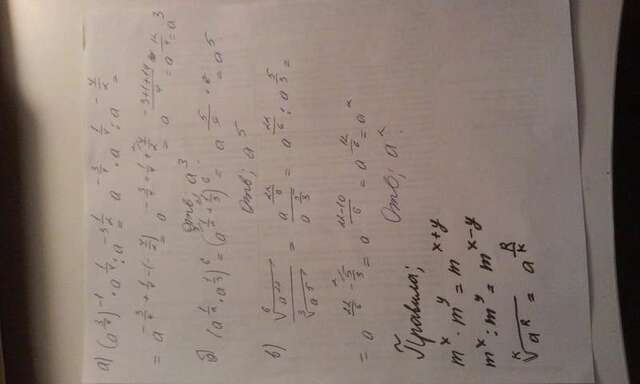 а) (a^{3/4})^{-1} · a^{1/4} : a^{-3 1/2} = a^{-3/4} · a^{1/4} : a^{-7/2} =
= a^{-3/4+1/4-(-7/2)} = a^{-3/4+1/4+7/2} = a^{(-3+1+14)/4} = a^{12/4} = a^3
Отв; a^3
б) (a^{1/2} · a^{1/3})^6 = (a^{1/2+1/3})^6 = a^{5/6 · 6} = a^5
Отв; a^5
в) \sqrt[6]{a^{22}} / \sqrt[3]{a^5} = a^{22/6} / a^{5/3} = a^{22/6} : a^{5/3} =
= a^{22/6 - 5/3} = a^{(22-10)/6} = a^{12/6} = a^2
Отв; a^2
Правила;
m^x · m^y = m^{x+y}
m^x : m^y = m^{x-y}
\sqrt[k]{a^p} = a^{p/k}